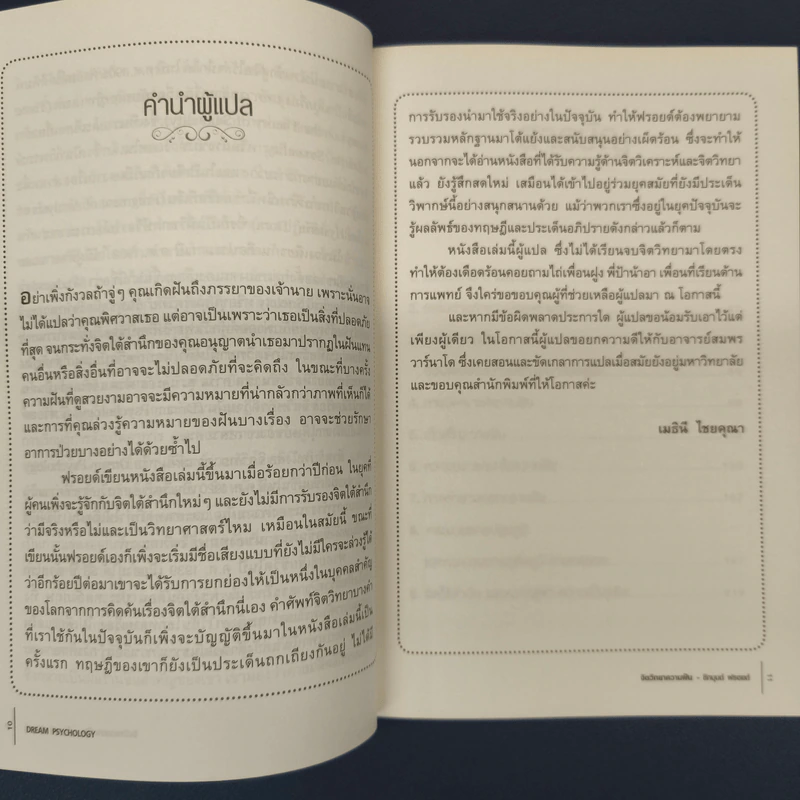 คำนำผู้แปล
อย่าเพิ่งกังวลถ้าจู่ๆ คุณเกิดฝันถึงภรรยาของเจ้านาย เพราะนั่นอาจ
ไม่ได้แปลว่าคุณพิศวาสเธอ แต่อาจเป็นเพราะว่าเธอเป็นสิ่งที่ปลอดภัย
ที่สุด จนกระทั่งจิตใต้สำนึกของคุณอนุญาตนำเธอมาปรากฏในฝันแทน
คนอื่นหรือสิ่งอื่นที่อาจจะไม่ปลอดภัยที่จะคิดถึง ในขณะที่บางครั้ง
ความฝันที่ดูสวยงามอาจจะมีความหมายที่น่ากลัวกว่าภาพที่เห็นก็ได้
และการที่คุณล่วงรู้ความหมายของฝันบางเรื่อง อาจจะช่วยรักษา
อาการป่วยบางอย่างได้ด้วยซ้ำไป
ฟรอยด์เขียนหนังสือเล่มนี้ขึ้นมาเมื่อร้อยกว่าปีก่อน ในยุคที่
ผู้คนเพิ่งจะรู้จักกับจิตใต้สำนึกใหม่ๆ และยังไม่มีการรับรองจิตใต้สำนึก
ว่ามีจริงหรือไม่และเป็นวิทยาศาสตร์ไหม เหมือนในสมัยนี้ ขณะที่
เขียนนั้นฟรอยด์เองก็เพิ่งจะเริ่มมีชื่อเสียงแบบที่ยังไม่มีใครจะล่วงรู้ได้
ว่าอีกร้อยปีต่อมาเขาจะได้รับการยกย่องให้เป็นหนึ่งในบุคคลสำคัญ
ของโลกจากการคิดค้นเรื่องจิตใต้สำนึกนี่เอง คำศัพท์จิตวิทยาบางคำ
ที่เราใช้กันในปัจจุบันก็เพิ่งจะบัญญัติขึ้นมาในหนังสือเล่มนี้เป็น
ครั้งแรก ทฤษฎีของเขาก็ยังเป็นประเด็นถกเถียงกันอยู่ ไม่ได้มี
10
DREAM PSYCHOLOGY
การรับรองนำมาใช้จริงอย่างในปัจจุบัน ทำให้ฟรอยด์ต้องพยายาม
รวบรวมหลักฐานมาโต้แย้งและสนับสนุนอย่างเผ็ดร้อน ซึ่งจะทำให้
นอกจากจะได้อ่านหนังสือที่ได้รับความรู้ด้านจิตวิเคราะห์และจิตวิทยา
แล้ว ยังรู้สึกสดใหม่ เสมือนได้เข้าไปอยู่ร่วมยุคสมัยที่ยังมีประเด็น
วิพากษ์นี้อย่างสนุกสนานด้วย แม้ว่าพวกเราซึ่งอยู่ในยุคปัจจุบันจะ
รู้ผลลัพธ์ของทฤษฎีและประเด็นอภิปรายดังกล่าวแล้วก็ตาม
หนังสือเล่มนี้ผู้แปล ซึ่งไม่ได้เรียนจบจิตวิทยามาโดยตรง
ทำให้ต้องเดือดร้อนคอยถามไถ่เพื่อนฝูง พี่ป้าน้าอา เพื่อนที่เรียนด้าน
การแพทย์ จึงใคร่ขอขอบคุณผู้ที่ช่วยเหลือผู้แปลมา ณ โอกาสนี้
และหากมีข้อผิดพลาดประการใด ผู้แปลขอน้อมรับเอาไว้แต่
เพียงผู้เดียว ในโอกาสนี้ผู้แปลขอยกความดีให้กับอาจารย์สมพร
วาร์นาโด ซึ่งเคยสอนและขัดเกลาการแปลเมื่อสมัยยังอยู่มหาวิทยาลัย
และขอบคุณสำนักพิมพ์ที่ให้โอกาสค่ะ
เมธินี ไชยคุณา
จิตวิทยาความฝัน - ซิกมุนด์ ฟรอยด์
11